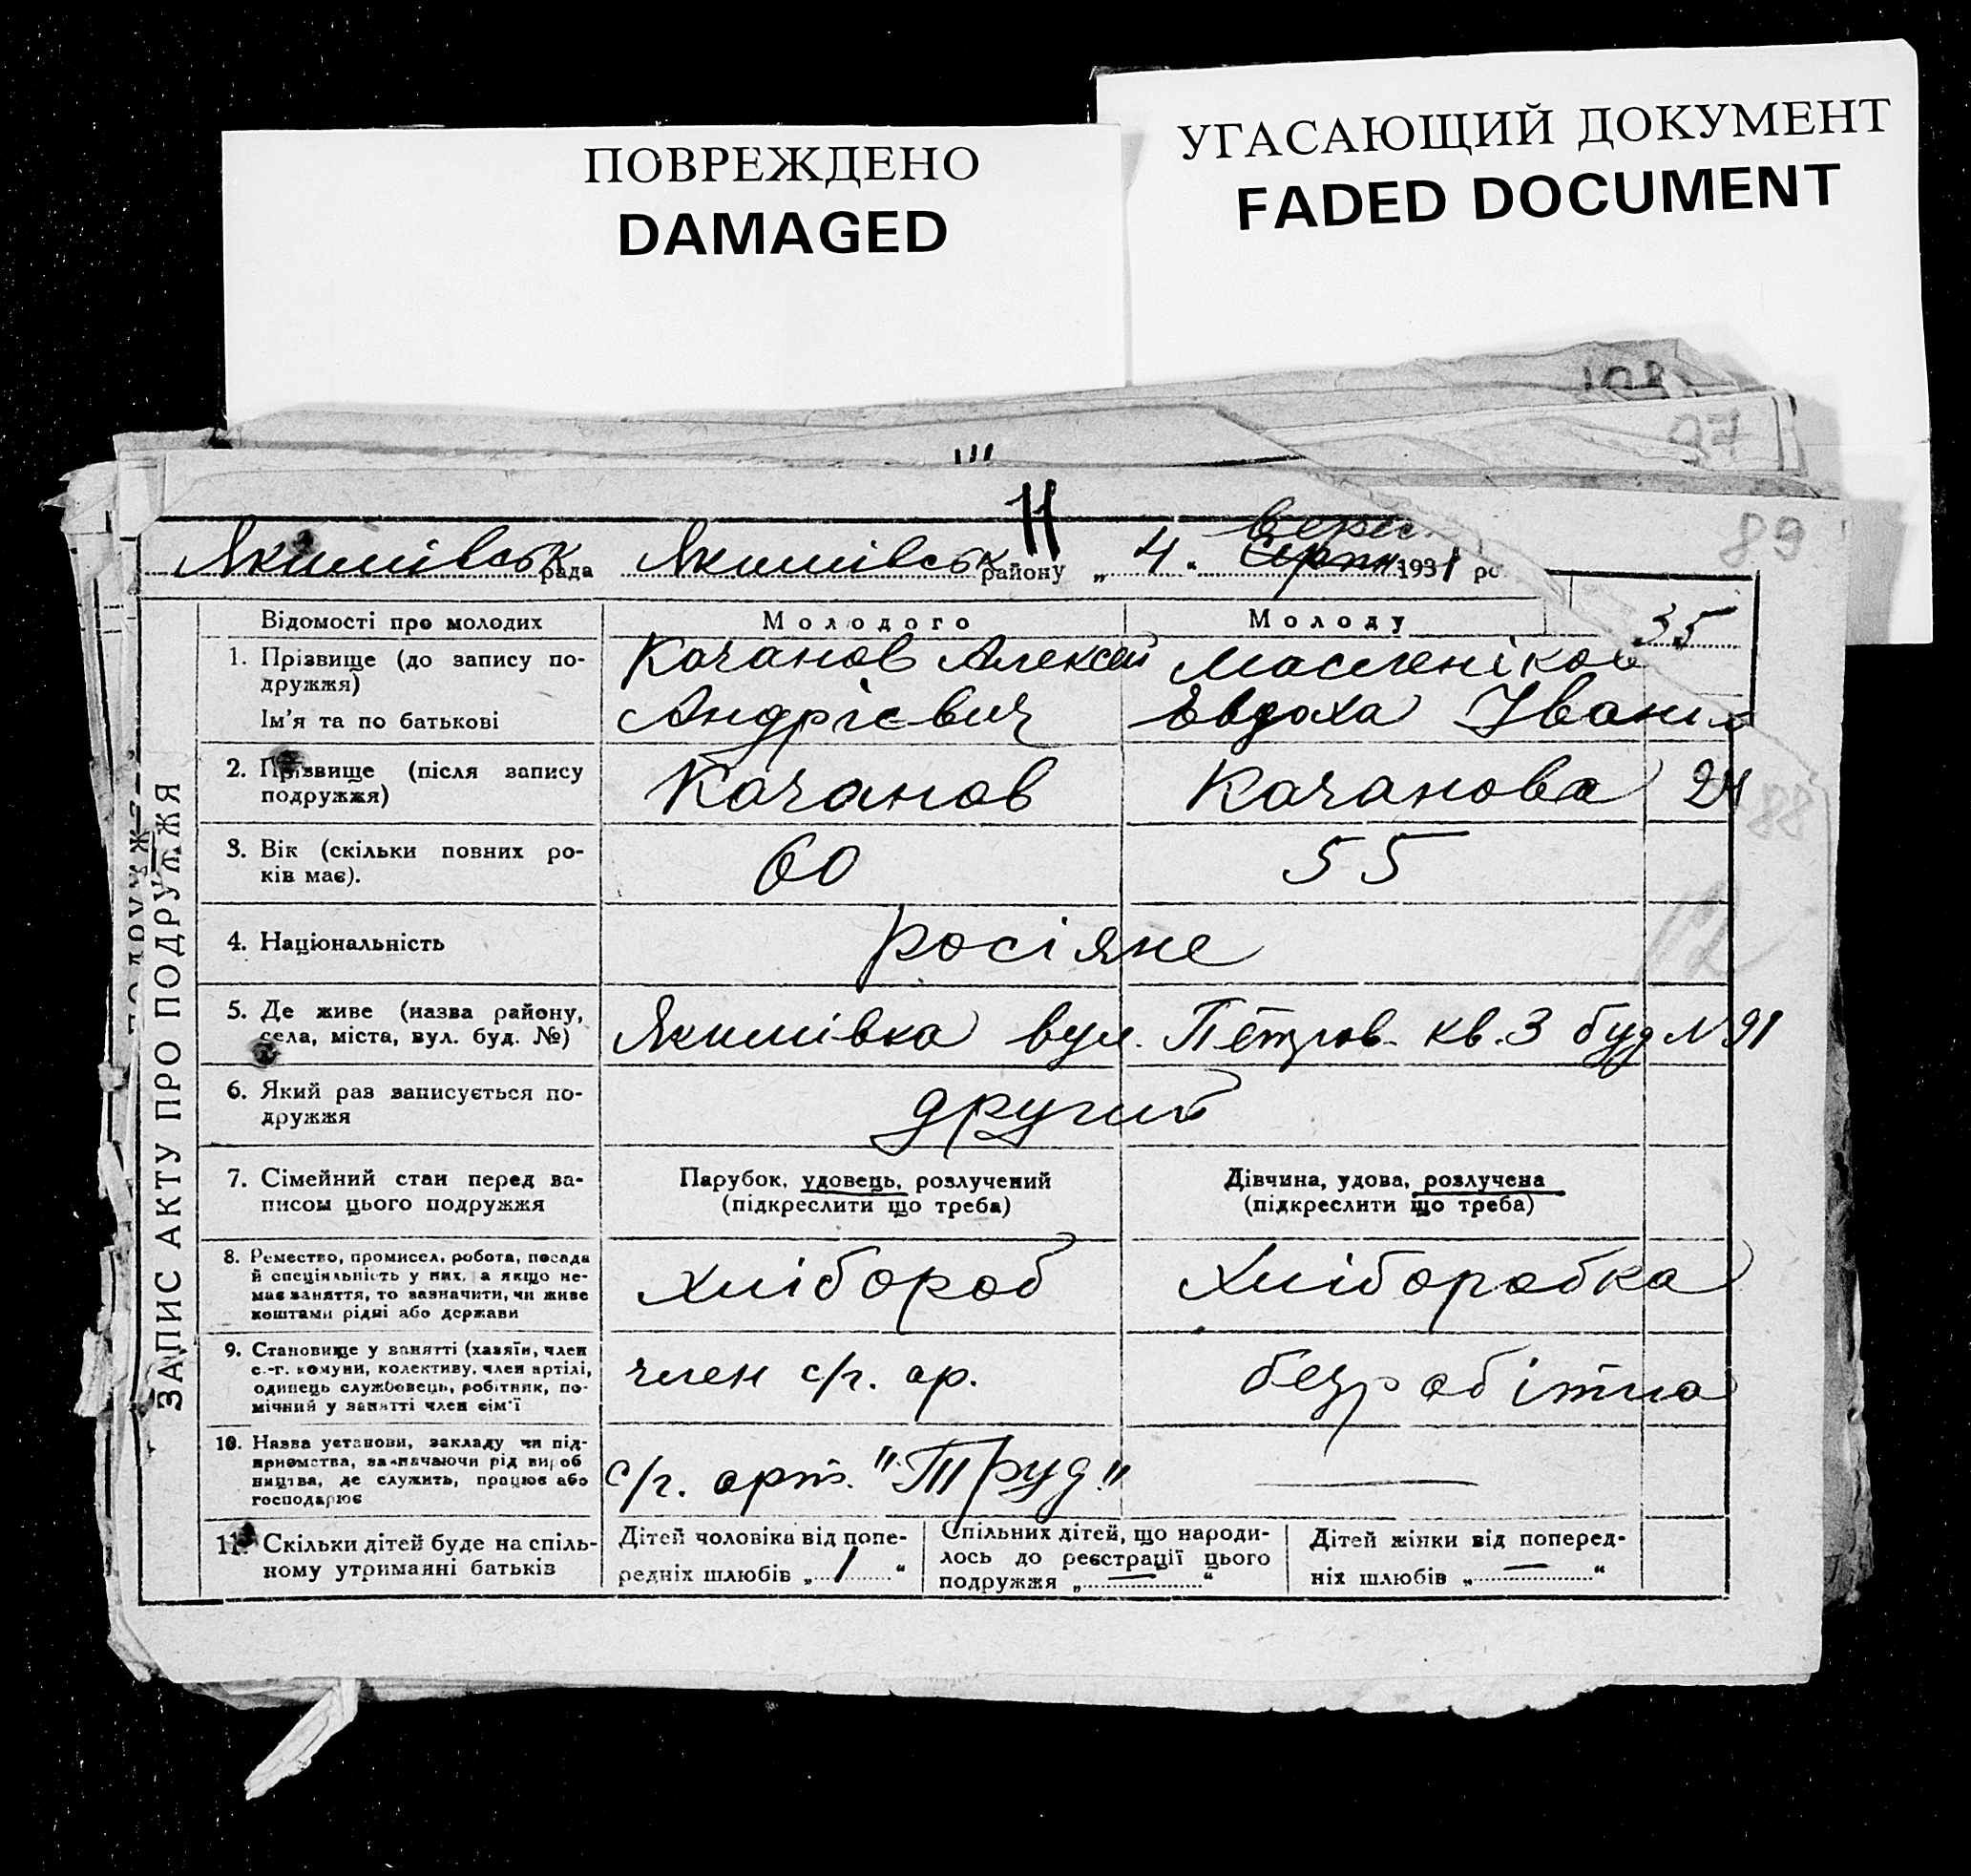 ПОВРЕЖДЕНО
DAMAGED
УГАСАЮЩИЙ ДОКУМЕНТ
FADED DOCUMENT
97
89
Верес
Якимівськ рада Якимівськ району „ 4 " Серпн 1931 ро
35
ЗАПИС АКТУ ПРО ПОДРУЖЖЯ
Відомості про молодих Молодого Молоду
1. Прізвище (до запису по- Качанов Алексей Масленіков
дружжя)
Ім'я та по батькові Андрієвич Евдоха Іванів
2. Прізвище (після запису Качанов Качанова 24
подружжя)
88
3. Вік (скільки повних ро- 60 55
ків має).
4. Національність росіяне
5. Де живе (назва району, Якимівка вул. Петров. кв. 3 буд N 91
села, міста, вул. буд. №)
6. Який раз записується по- другий
дружжя
7. Сімейний стан перед за- Парубок, удовець, розлучений Дівчина, удова, розлучена
писом цього подружжя (підкреслити що треба) (підкреслити що треба)
8. Ремество, промисел, робота, посада
й спеціяльність у них, а якщо не- Хлібороб Хліборобка
має заняття, то зазначити, чи живе
коштами рідні або держави
9. Становище у занятті (хазяїн, член
с.-г. комуни, колективу, член артілі, член с/г. ар. безробітна
одинець службовець, робітник, по-
мічний у занятті член сім'ї
10. Назва установи, закладу чи під-
приємства, зазначаючи рід вироб
ництва, де служить, працює або с/г. арт. "Труд"
господарює
11. Скільки дітей буде на спіль- Дітей чоловіка від попе- Спільних дітей, що народи- Дітей жінки від поперед-
ному утриманні батьків редніх шлюбів „ 1 " лось до реєстрації цього ніх шлюбів „ — "
подружжя „ — "